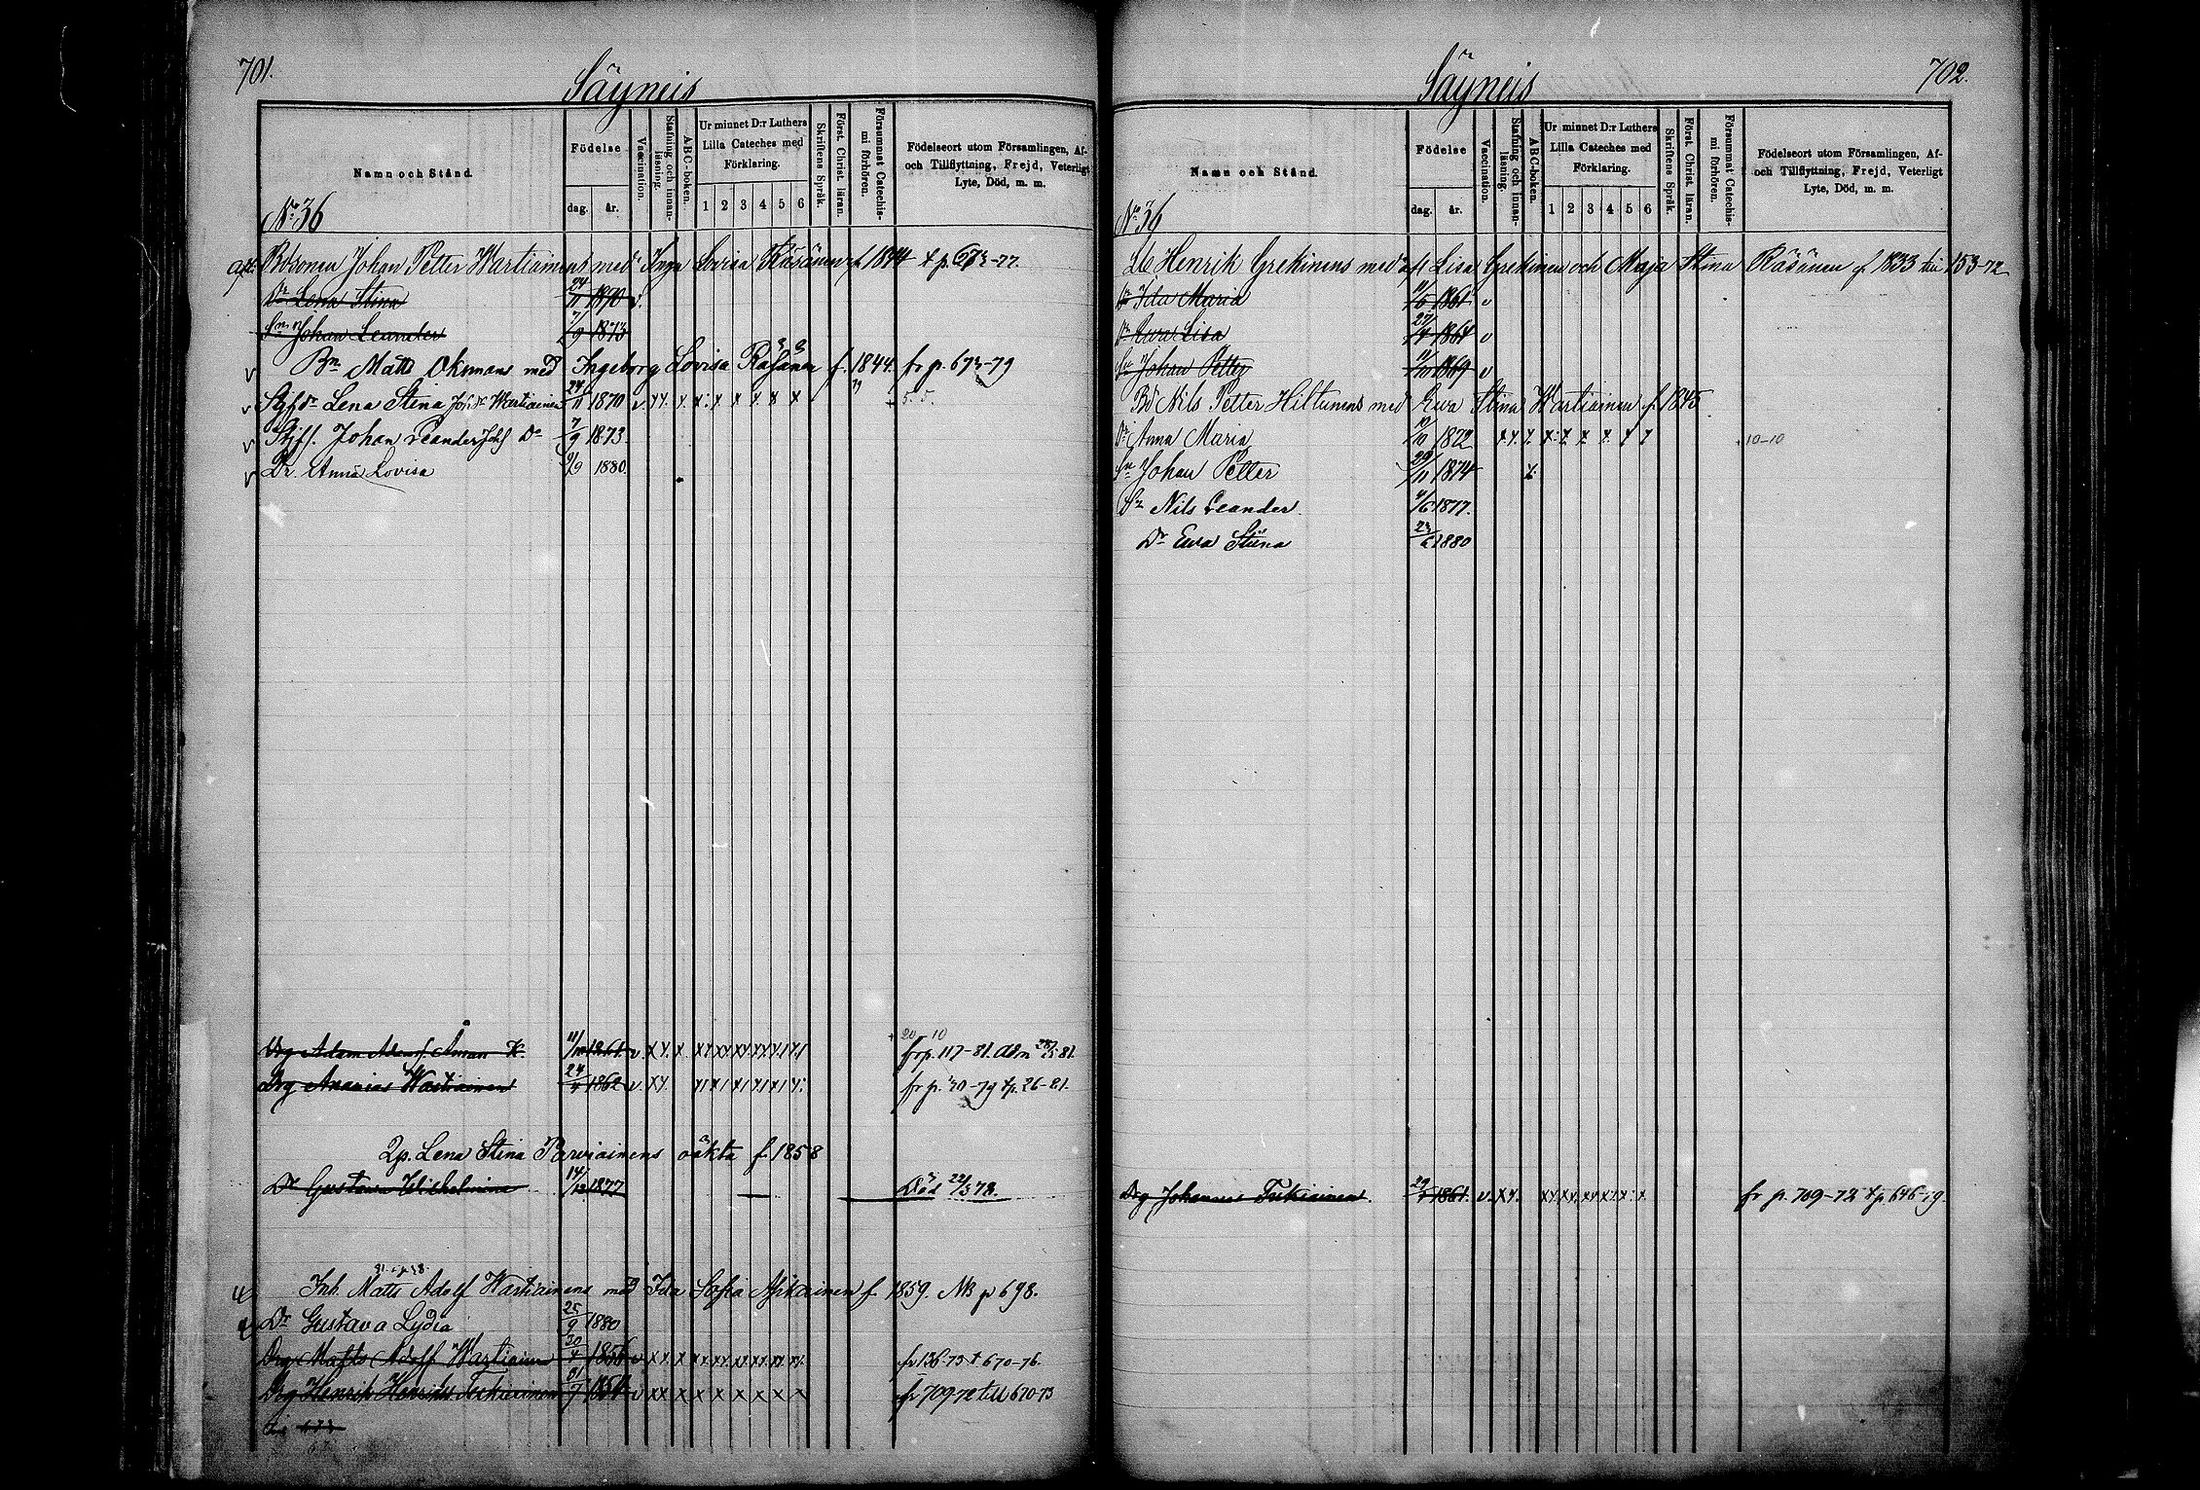 701.
Säyneis
Namn och Stånd.
Födelse
dag. år.
Vaccination.
Stafning och innan-läsning.
ABC-boken.
Ur minnet D:r Luthers Lilla Cateches med Förklaring.
1 2 3 4 5 6
Skriftens Språk.
Först. Christ. läran.
Försummat Catechis-mi förhören.
Födelseort utom Församlingen, Af- och Tillflyttning, Frejd, Veterligt Lyte, Död, m. m.
No 36
Johan Petter Wartiainens med Inga Lovisa Räsänen f. 1844 t p. 673-77.
Dr Lena Stina 24/11 1870 v.
Sn Johan Leander 7/9 1873
Bn Matts Okmans med Ingeborg Lovisa Räsänen f. 1844. fr p. 673-79
Styfdr Lena Stina Wartiainen 24/11 1870 v. x x. x. x x x x x x 5. 5.
Styfs. Johan Leander Do 7/9 1873.
Dr. Anna Lovisa 9/9 1880.
20 10
Drg Adam Åman 11/12 1861 v. fr p. 117-81. 81.
Drg Ananias Wartiainen 24/4 1862 v. fr p. 70-79 t p. 26-81.
Lena Stina Parviainens oäkta f. 1858
Dr Gustava Wilhelmina 14/12 1877 Död 22/5 78.
Inh. Matts Adolf Wartiainens med Ida Sofia f. 1859. Nb p 698.
Dr Gustava Lydia 25/9 1880
Drg Matts Adolf Wartiainen 30/4 1856 v fr 136-73 t 670-76.
Drg Henrik Tukiainen v fr 709-72 till 670-73
702.
Säyneis
Namn och Stånd.
Födelse
dag. år.
Vaccination.
Stafning och innan-läsning.
ABC-boken.
Ur minnet D:r Luthers Lilla Cateches med Förklaring.
1 2 3 4 5 6
Skriftens Språk.
Först. Christ. läran.
Försummat Catechis-mi förhören.
Födelseort utom Församlingen, Af- och Tillflyttning, Frejd, Veterligt Lyte, Död, m. m.
No 36
Henrik Grekinens med afl Lisa Grekinen och Maja Stina Räsänen f 1833 till 153-72
Dr Ida Maria 1861 v
Dr Eva Lisa 1864 v
Sn Johan Petter 1869 v
Bd Nils Petter Hiltunens med Eva Stina Wartiainen f. 1845
Dr Anna Maria 1872 10-10
Sn Johan Petter 29/11 1874
Sn Nils Leander. 4/6 1877.
Dr Eva Stina 1880
Drg Johannes Tukiainen. 1861. v. fr p. 709-72 t p. 646-79.